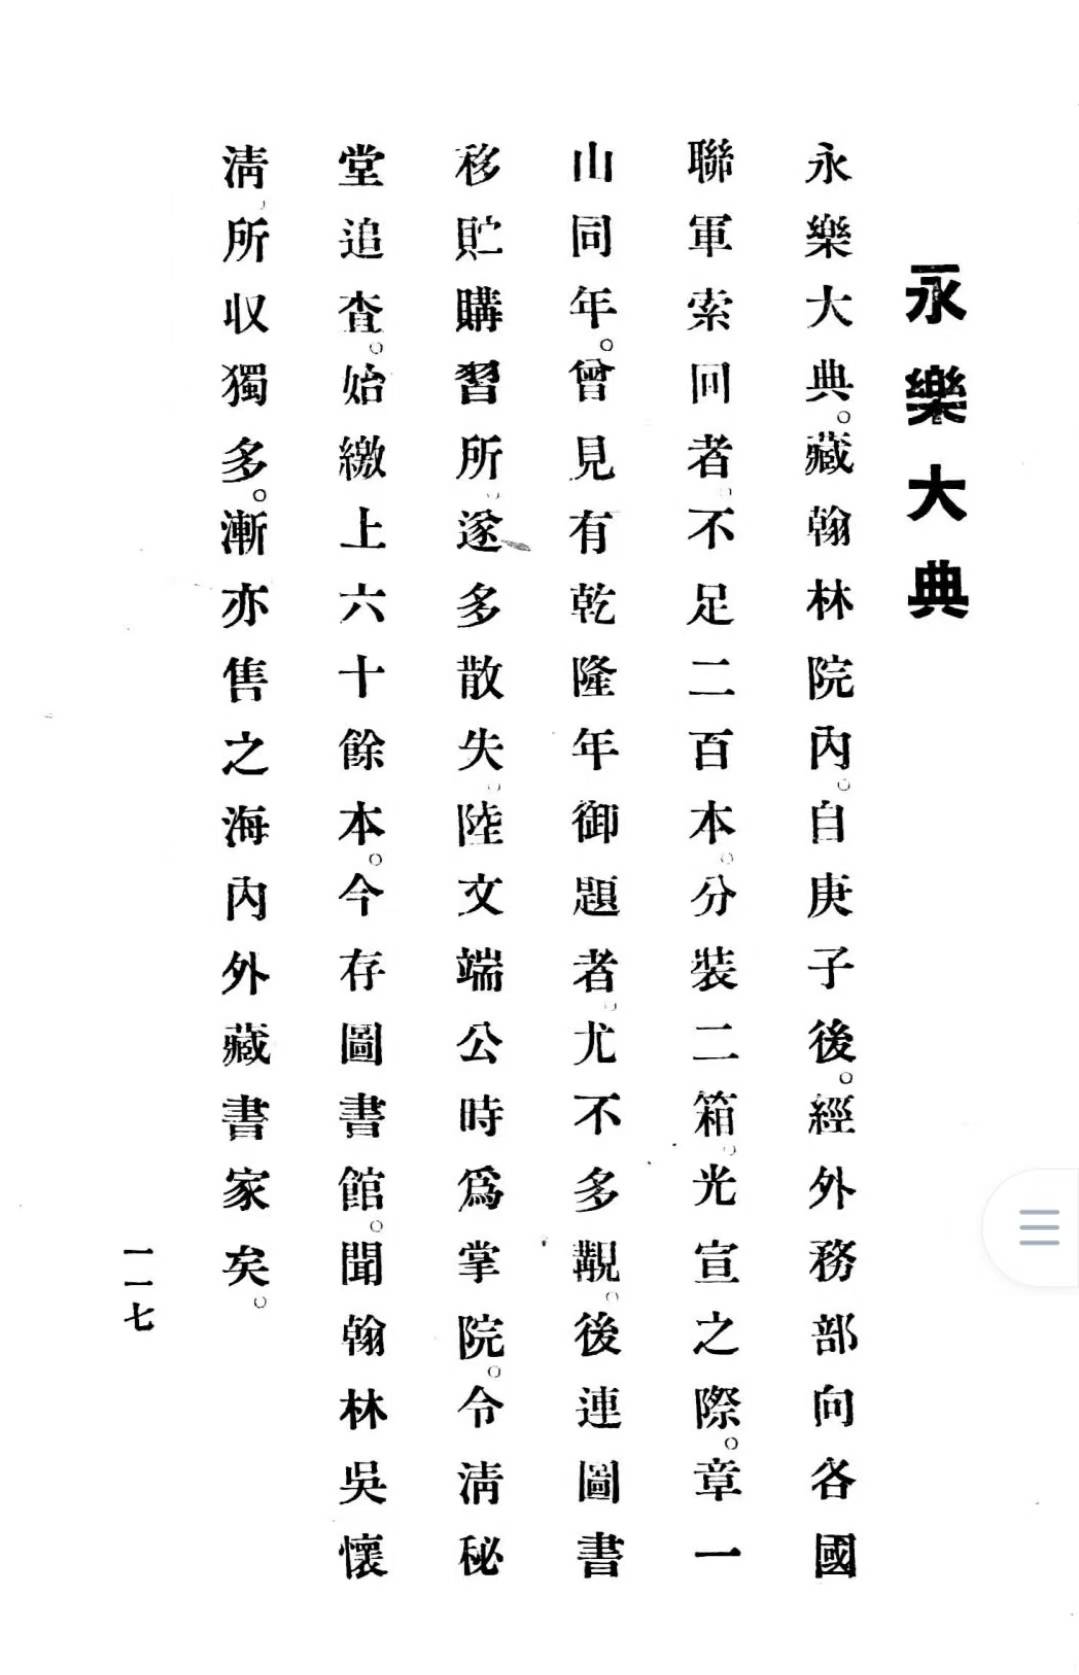 永樂大典
永樂大典。藏翰林院內。自庚子後。經外務部向各國
聯軍索回者。不足二百本。分裝二箱。光宣之際。章一
山同年。曾見有乾隆年御題者。尤不多覩。後連圖書
移貯購習所。遂多散失。陸文端公時爲掌院。令清秘
堂追查。始繳上六十餘本。今存圖書館。聞翰林吳懷
清所收獨多。漸亦售之海內外藏書家矣。
一一七